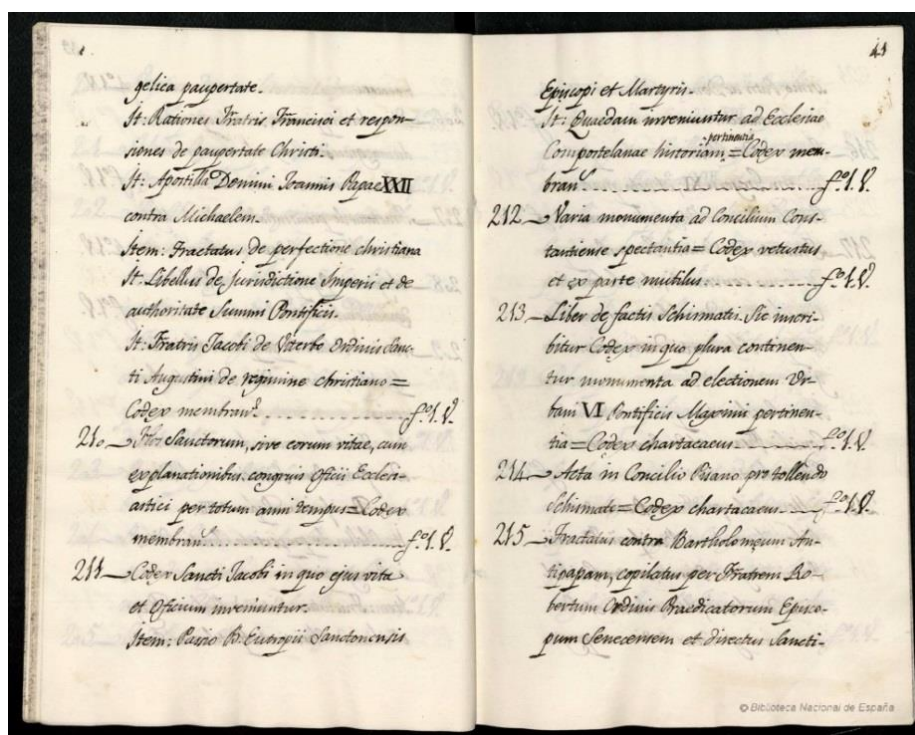 gelica paupertate.
It: Rationes Fratris Francisci et respon-
siones de paupertate Christi.
It: Apostilla Domini Joannis Papae XXII
contra Michaelem.
Item: Tractatus de perfectione christiana
It: Libellus de Jurisdictione Imperii et de
authoritate Summi Pontificis.
It: Fratris Jacobi de Viterbo Ordinis Sanc-
ti Augustini de regimine christiano =
Codex membran.s ............ fo.1.V.
210 Flos Sanctorum, sive eorum vitae, cum
explanationibus congruis Oficii Ecclesi-
astici per totum anni tempus = Codex
membran.s ............ fo.1.V.
211 Codex Sancti Jacobi in quo ejus vita
et Oficium inveniuntur.
Item: Passio B. Eutropii Sanctonensis
Episcopi et Martyris.
It: Quaedam inveniuntur ad Ecclesiae
Compostelanae historiam pertinentia = Codex mem-
bran.s ............ fo.1.V.
212 Varia monumenta ad Concilium Cons-
tantiense spectantia = Codex vetustus
et ex parte mutilus ............ fo.1.V.
213 Liber de factis Schismatis. Sic inscri-
bitur Codex in quo plura continen-
tur monumenta ad electionem Ur-
bani VI Pontificis Maximi pertinen-
tia = Codex chartacaeus ............ fo.1.V.
214 Acta in Concilio Pisano pro tollendo
Schismate = Codex chartacaeus ....... fo.1.V.
215 Tractatus contra Bartholomeum An-
tipapam, copilatus per Fratrem Ro-
bertum Ordinis Praedicatorum Episco-
pum Senecensem et directus Sancti-
© Biblioteca Nacional de España